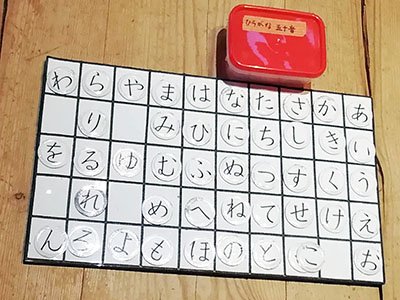 ひらがな 五十音
あいうえお
かきくけ
さしすせこ
たちつてと
なにぬねの
はひふへほ
まみむめも
やゆよ
らりるれろ
わをん